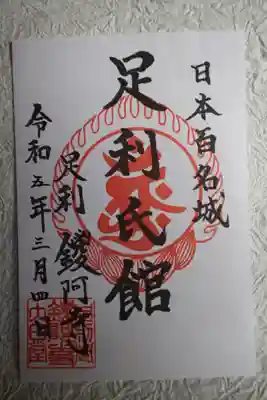 日本百名城
足利氏館
足利 鑁阿寺
令和五年三月四日